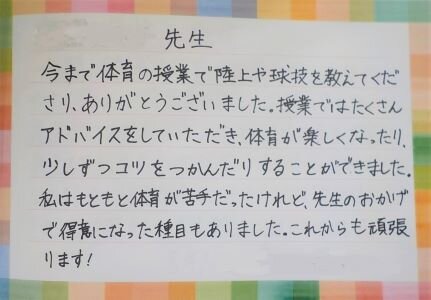 先生
今まで体育の授業で陸上や球技を教えてくだ
さり、ありがとうございました。授業ではたくさん
アドバイスをしていただき、体育が楽しくなったり、
少しずつコツをつかんだりすることができました。
私はもともと体育が苦手だったけれど、先生のおかげ
で得意になった種目もありました。これからも頑張
ります!